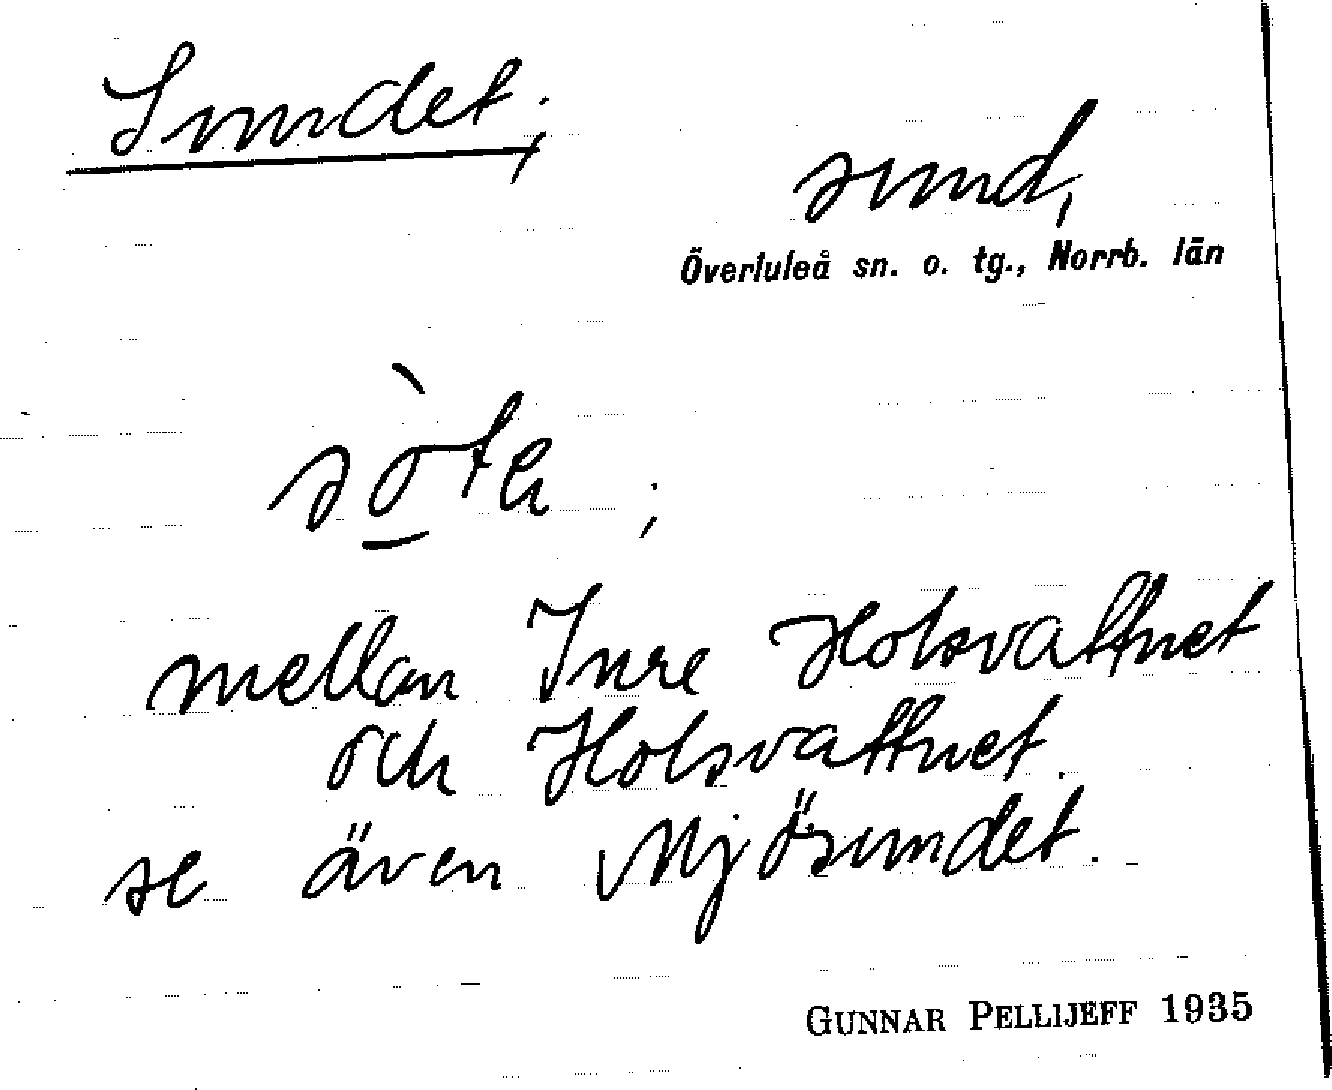 Sundet;
sund,
Överluleå sn. o. tg., Norrb. län
mellan Inre Holsvattnet
och Holsvattnet.
se även Mjösundet.
GUNNAR PELLIJEFF 1935